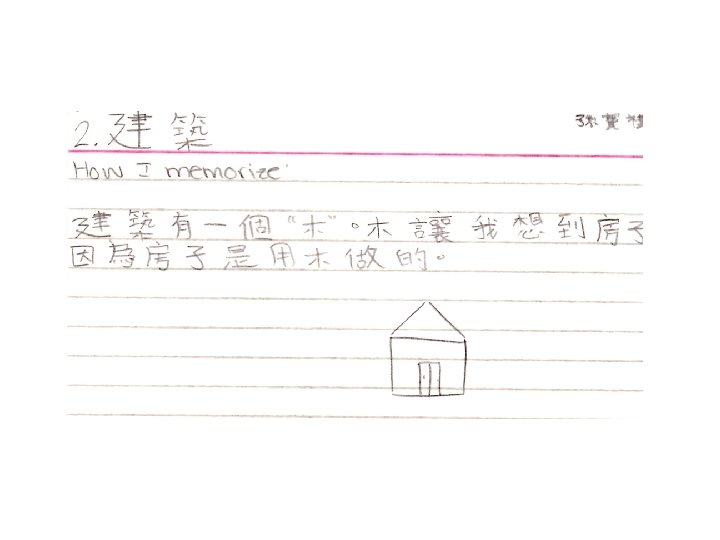 2. 建築
How I memorize
建築有一個"木"。木讓我想到房子
因為房子是用木做的。